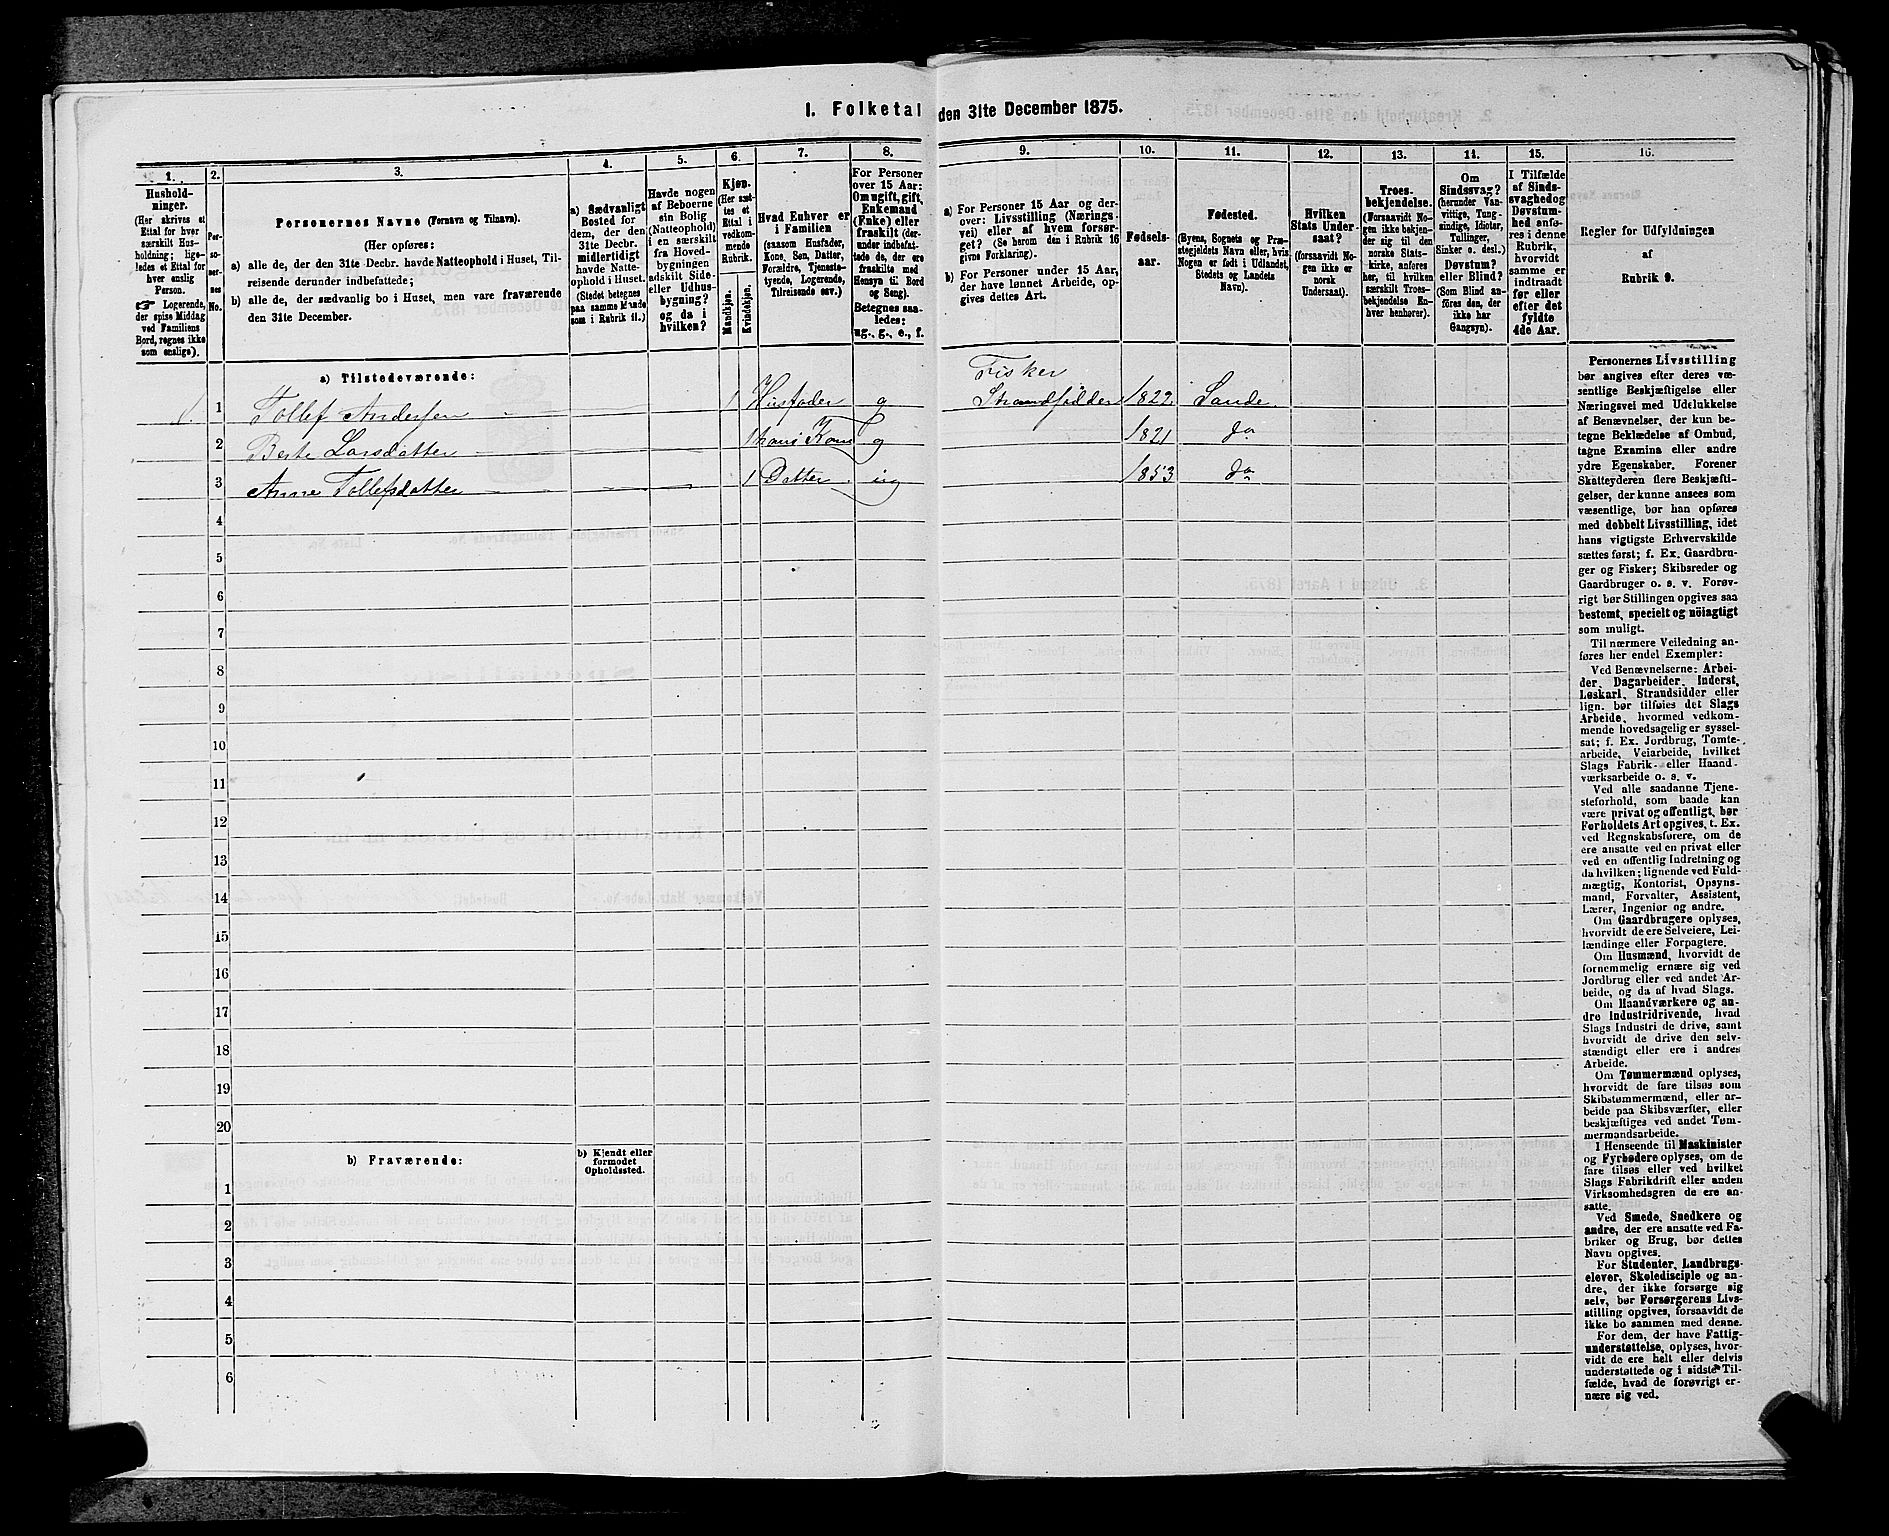 I. Folketal den 31te December 1875.
1. 2. 3. 4. 5. 6. 7. 8. 9. 10. 11. 12. 13. 14. 15. 16.
Hushold-
ninger.
(Her skrives et
Ettal for hver
særskilt Hus-
holdning; lige-
ledes et Ettal for
hver enslig
Person.
☞ Logerende,
der spise Middag
ved Familiens
Bord, regnes ikke
som enslige).
Per-
so-
ner-
nes
No.
Personernes Navne (Fornavn og Tilnavn).
(Her opføres:
a) alle de, der den 31te Decbr. havde Natteophold i Huset, Til-
reisende derunder indbefattede;
b) alle de, der sædvanlig bo i Huset, men vare fraværende
den 31te December.
a) Sædvanligt
Bosted for
dem, der den
31te Decbr.
midlertidigt
havde Natte-
ophold i Huset.
(Stedet betegnes
paa samme Maade
som i Rubrik 11.)
Havde nogen
af Beboerne
sin Bolig
(Natteophold)
i en særskilt
fra Hoved-
bygningen
adskilt Side-
eller Udhus-
bygning?
og da i
hvilken?
Kjøn.
(Her sæt-
tes et
Ettal i
vedkom-
mende
Rubrik.
Mandkjøn.
Kvindekjøn.
Hvad Enhver er
i Familien
(saasom Husfader,
Kone, Søn, Datter,
Forældre, Tjeneste-
tyende, Logerende,
Tilreisende osv.)
For Personer
over 15 Aar:
Om ugift, gift,
Enkemand
(Enke) eller
fraskilt (der-
under indbefat-
tede de, der ere
fraskilte med
Hensyn til Bord
og Seng).
Betegnes saa-
ledes:
ug., g., e., f.
a) For Personer 15 Aar og der-
over: Livsstilling (Nærings-
vei) eller af hvem forsør-
get? (Se herom den i Rubrik 16
givne Forklaring).
b) For Personer under 15 Aar,
der have lønnet Arbeide, op-
gives dettes Art.
Fødsels-
aar.
Fødested.
(Byens, Sognets og Præ-
stegjeldets Navn eller, hvis
Nogen er født i Udlandet,
Stedets og Landets
Navn).
Hvilken
Stats Under-
saat?
(forsaavidt No-
gen ikke er
norsk
Undersaat).
Troes-
bekjendelse.
(Forsaavidt No-
gen ikke bekjen-
der sig til den
norske Stats-
kirke, anføres
her, til hvilken
særskilt Troes-
bekjendelse En-
hver henhører).
Om
Sindssvag?
(herunder Van-
vittige, Tung-
sindige, Idioter,
Tullinger,
Sinker o. desl.)
Døvstum?
eller Blind?
(Som Blind an-
føres den, der
ikke har
Gangsyn).
I Tilfælde
af Sinds-
svaghed og
Døvstum-
hed anfø-
res i denne
Rubrik,
hvorvidt
samme er
indtraadt
før eller
efter det
fyldte
4de Aar.
Regler for Udfyldningen
af
Rubrik 9.
a) Tilstedeværende:
Fisker
1 1 Tollef Andersen 1 Husfader g Strandsidder 1822 Sande
2 Berte Larsdatter 1 hans Kone g 1821 do
3 Anne Tollefsdatter 1 Datter ug 1853 do
4
5
6
7
8
9
10
11
12
13
14
15
16
17
18
19
20
b) Fraværende:
b) Kjendt eller
formodet
Opholdssted.
1
2
3
4
5
6
Personernes Livsstilling
bør angives efter deres væ-
sentlige Beskjæftigelse eller
Næringsvei med Udelukkelse
af Benævnelser, der kun be-
tegne Beklædelse af Ombud,
tagne Examina eller andre
ydre Egenskaber. Forener
Skatteyderen flere Beskjæfti-
gelser, der kunne ansees som
væsentlige, bør han opføres
med dobbelt Livsstilling, idet
hans vigtigste Erhvervskilde
sættes først; f. Ex. Gaardbru-
ger og Fisker; Skibsreder og
Gaardbruger o. s. v. Forøv-
rigt bør Stillingen opgives saa
bestemt, specielt og nöiagtigt
som muligt.
Til nærmere Veiledning an-
føres her endel Exempler:
Ved Benævnelserne: Arbei-
der, Dagarbeider, Inderst,
Løskarl, Strandsidder eller
lign. bør tilføies det Slags
Arbeide, hvormed vedkom-
mende hovedsagelig er syssel-
sat; f. Ex. Jordbrug, Tomte-
arbeide, Veiarbeide, hvilket
Slags Fabrik- eller Haand-
værksarbeide o. s. v.
Ved alle saadanne Tjene-
steforhold, som baade kan
være privat og offentligt, bør
Forholdets Art opgives, t. Ex.
ved Regnskabsførere, om de
ere ansatte ved en privat eller
ved en offentlig Indretning og
da hvilken; lignende ved Fuld-
mægtig, Kontorist, Opsyns-
mand, Forvalter, Assistent,
Lærer, Ingeniør og andre.
Om Gaardbrugere oplyses,
hvorvidt de ere Selveiere, Lei-
lændinge eller Forpagtere.
Om Husmænd, hvorvidt de
fornemmelig ernære sig ved
Jordbrug eller ved andet Ar-
beide, og da af hvad Slags.
Om Haandværkere og an-
dre Industridrivende, hvad
Slags Industri de drive, samt
hvorvidt de drive den selv-
stændigt eller ere i andres
Arbeide.
Om Tømmermænd oplyses,
hvorvidt de fare tilsøs som
Skibstømmermænd, eller ar-
beide paa Skibsværfter, eller
beskjæftiges ved andet Tøm-
mermandsarbeide.
I Henseende til Maskinister
og Fyrbødere oplyses, om de
fare tilsøs eller ved hvilket
Slags Fabrikdrift eller anden
Virksomhedsgren de ere an-
satte.
Ved Smede, Snedkere og
andre, der ere ansatte ved Fa-
briker og Brug, bør dettes
Navn opgives.
For Studenter, Landbrugs-
elever, Skoledisciple og an-
dre, der ikke forsørge sig
selv, bør Forsørgerens Livs-
stilling opgives, forsaavidt de
ikke bo sammen med denne.
For dem, der have Fattig-
understøttelse, oplyses, hvor-
vidt de ere helt eller delvis
understøttede og i sidste Til-
fælde, hvad de forøvrigt er-
nære sig ved.